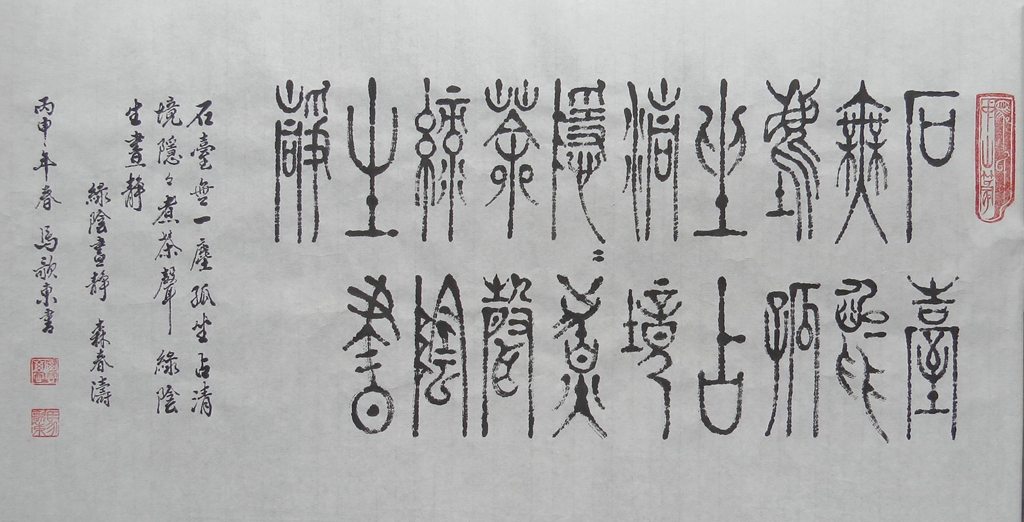 石臺
無一
塵孤
坐占
清境
隱〻煮
茶聲
綠陰
生晝
靜
石臺無一塵孤坐占清
境隱々煮茶聲 綠陰
生晝靜
綠陰晝靜 森春濤
丙申年春 馬歌東書